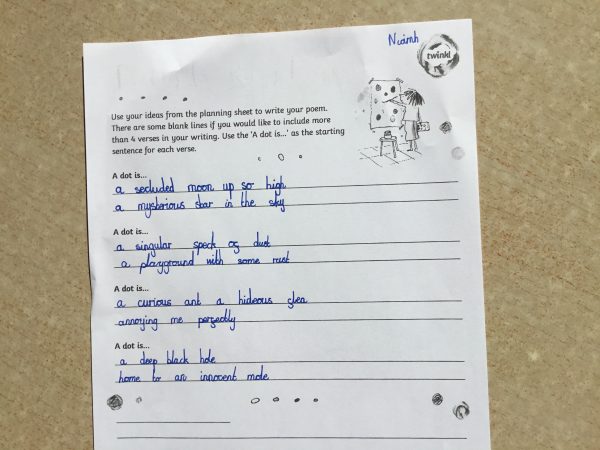 Niamh
twinkl
Use your ideas from the planning sheet to write your poem.
There are some blank lines if you would like to include more
than 4 verses in your writing. Use the 'A dot is...' as the starting
sentence for each verse.
A dot is...
a secluded moon up so high
a mysterious star in the sky
A dot is...
a singular speck of dust
a playground with some rust
A dot is...
a curious ant a hideous flea
annoying me perfectly
A dot is...
a deep black hole
home to an innocent mole